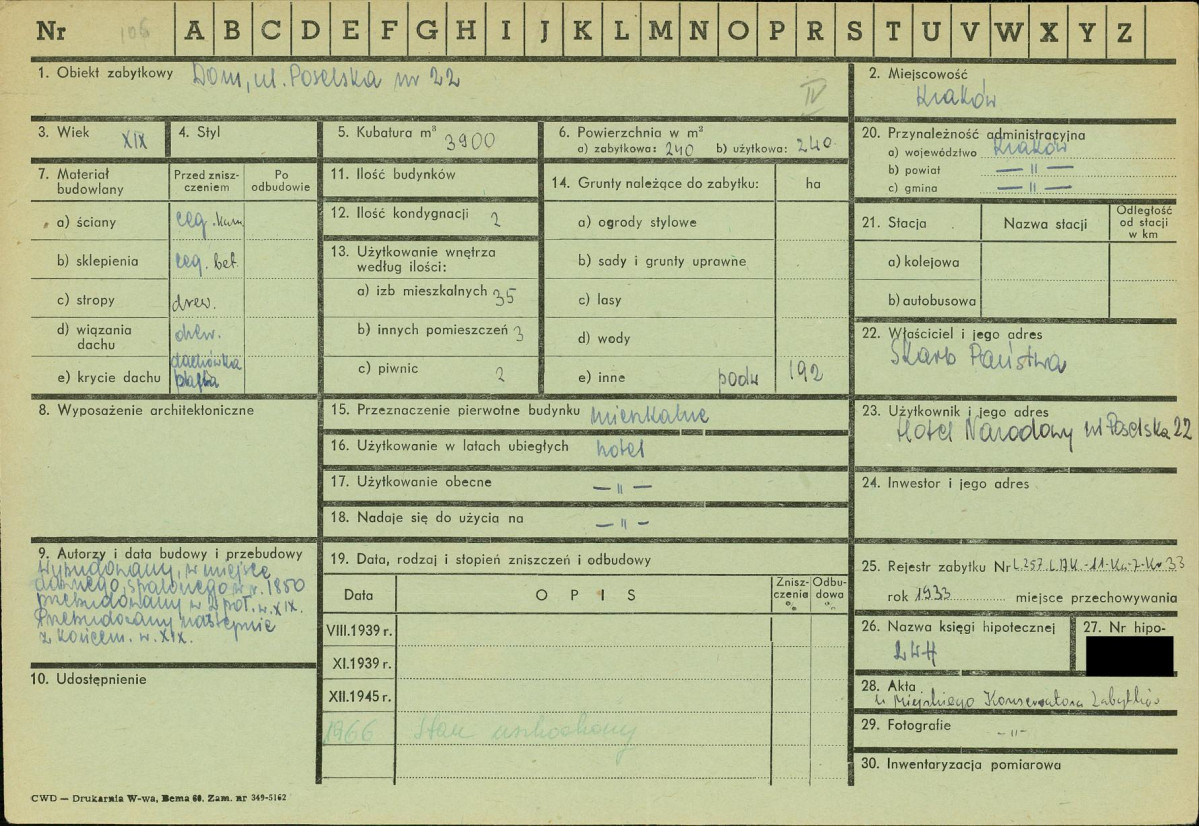 Nr 106 A B C D E F G H I J K L M N O P R S T U V W X Y Z
1. Obiekt zabytkowy Dom, ul. Poselska nr 22
IV
2. Miejscowość
Kraków
3. Wiek XIX
4. Styl
5. Kubatura m³ 3900
6. Powierzchnia w m²
a) zabytkowa: 240 b) użytkowa: 240
20. Przynależność administracyjna
a) województwo Kraków
b) powiat — " —
c) gmina — " —
7. Materiał budowlany
Przed zniszczeniem
Po odbudowie
a) ściany ceg. kam
b) sklepienia ceg. bet.
c) stropy drew.
d) wiązania dachu drew.
e) krycie dachu dachówka
11. Ilość budynków
12. Ilość kondygnacji 2
13. Użytkowanie wnętrza
według ilości:
a) izb mieszkalnych 35
b) innych pomieszczeń 3
c) piwnic 2
14. Grunty należące do zabytku: ha
a) ogrody stylowe
b) sady i grunty uprawne
c) lasy
d) wody
e) inne podw 192
21. Stacja
Nazwa stacji
Odległość
od stacji
w km
a) kolejowa
b) autobusowa
22. Właściciel i jego adres
Skarb Państwa
8. Wyposażenie architektoniczne
15. Przeznaczenie pierwotne budynku mieszkalne
16. Użytkowanie w latach ubiegłych hotel
17. Użytkowanie obecne — " —
18. Nadaje się do użycia na — " —
23. Użytkownik i jego adres
Hotel Narodowy ul Poselska 22
24. Inwestor i jego adres
9. Autorzy i data budowy i przebudowy
wybudowany, w miejsce
dawnego, spalonego w r. 1850
przebudowany w 2 poł. w. XIX.
Przebudowany następnie
z końcem. w. XIX.
10. Udostępnienie
19. Data, rodzaj i stopień zniszczeń i odbudowy
Data
OPIS
Zniszczenia %
Odbudowa %
VIII.1939 r.
XI.1939 r.
XII.1945 r.
1966 Stan
25. Rejestr zabytku Nr
rok 1933 miejsce przechowywania
26. Nazwa księgi hipotecznej
27. Nr hipo-
28. Akta
u Miejskiego Konserwatora Zabytków
29. Fotografie - " -
30. Inwentaryzacja pomiarowa
CWD — Drukarnia W-wa, Bema 60. Zam. nr 349-5162